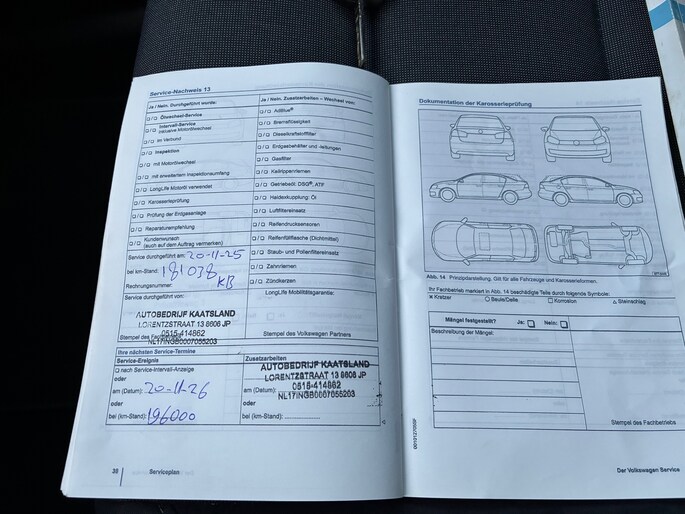 Service-Nachweis 13
Ja / Nein. Durchgeführt wurde:
Ölwechsel-Service
Intervall-Service
(inklusive Motorölwechsel)
im Verbund
Inspektion
mit Motorölwechsel
mit erweitertem Inspektionsumfang
LongLife Motoröl verwendet
Karosserieprüfung
Prüfung der Erdgasanlage
Reparaturempfehlung
Kundenwunsch
(auch auf dem Auftrag vermerken)
Service durchgeführt am: 20-11-25
bei km-Stand: 181038
Rechnungsnummer: KB
Ja / Nein. Zusatzarbeiten – Wechsel von:
AdBlue®
Bremsflüssigkeit
Dieselkraftstofffilter
Erdgasbehälter und -leitungen
Gasfilter
Keilrippenriemen
Getriebeöl: DSG®, ATF
Haldexkupplung: Öl
Luftfiltereinsatz
Reifendrucksensoren
Reifenfüllflasche (Dichtmittel)
Staub- und Pollenfiltereinsatz
Zahnriemen
Zündkerzen
Service durchgeführt von:
LongLife Mobilitätsgarantie:
AUTOBEDRIJF KAATSLAND
LORENTZSTRAAT 13 8606 JP
0515-414862
NL17INGB0007055203
Stempel des
Stempel des Volkswagen Partners
Ihre nächsten Service-Termine
Service-Ereignis
nach Service-Intervall-Anzeige
oder
am (Datum): 20-11-26
oder
bei (km-Stand): 196000
Zusatzarbeiten
AUTOBEDRIJF KAATSLAND
LORENTZSTRAAT 13 8606 JP
am (Datum): 0515-414862
NL17INGB0007055203
oder
bei (km-Stand):
38 Serviceplan
Dokumentation der Karosserieprüfung
Abb. 14 Prinzipdarstellung. Gilt für alle Fahrzeuge und Karosserieformen.
Ihr Fachbetrieb markiert in Abb. 14 beschädigte Teile durch folgende Symbole:
Kratzer Beule/Delle Korrosion Steinschlag
Mängel festgestellt? Ja: Nein:
Beschreibung der Mängel:
Stempel des Fachbetriebs
Der Volkswagen Service